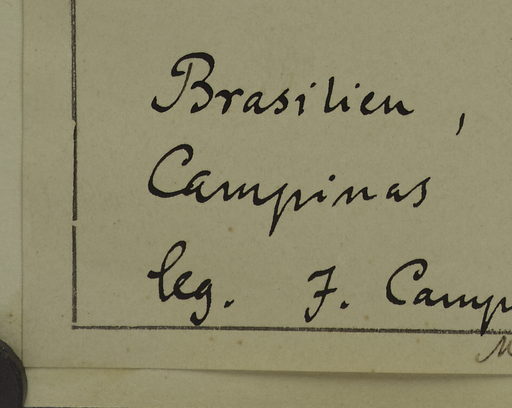 Brasilien,
Campinas
leg. J. Camp